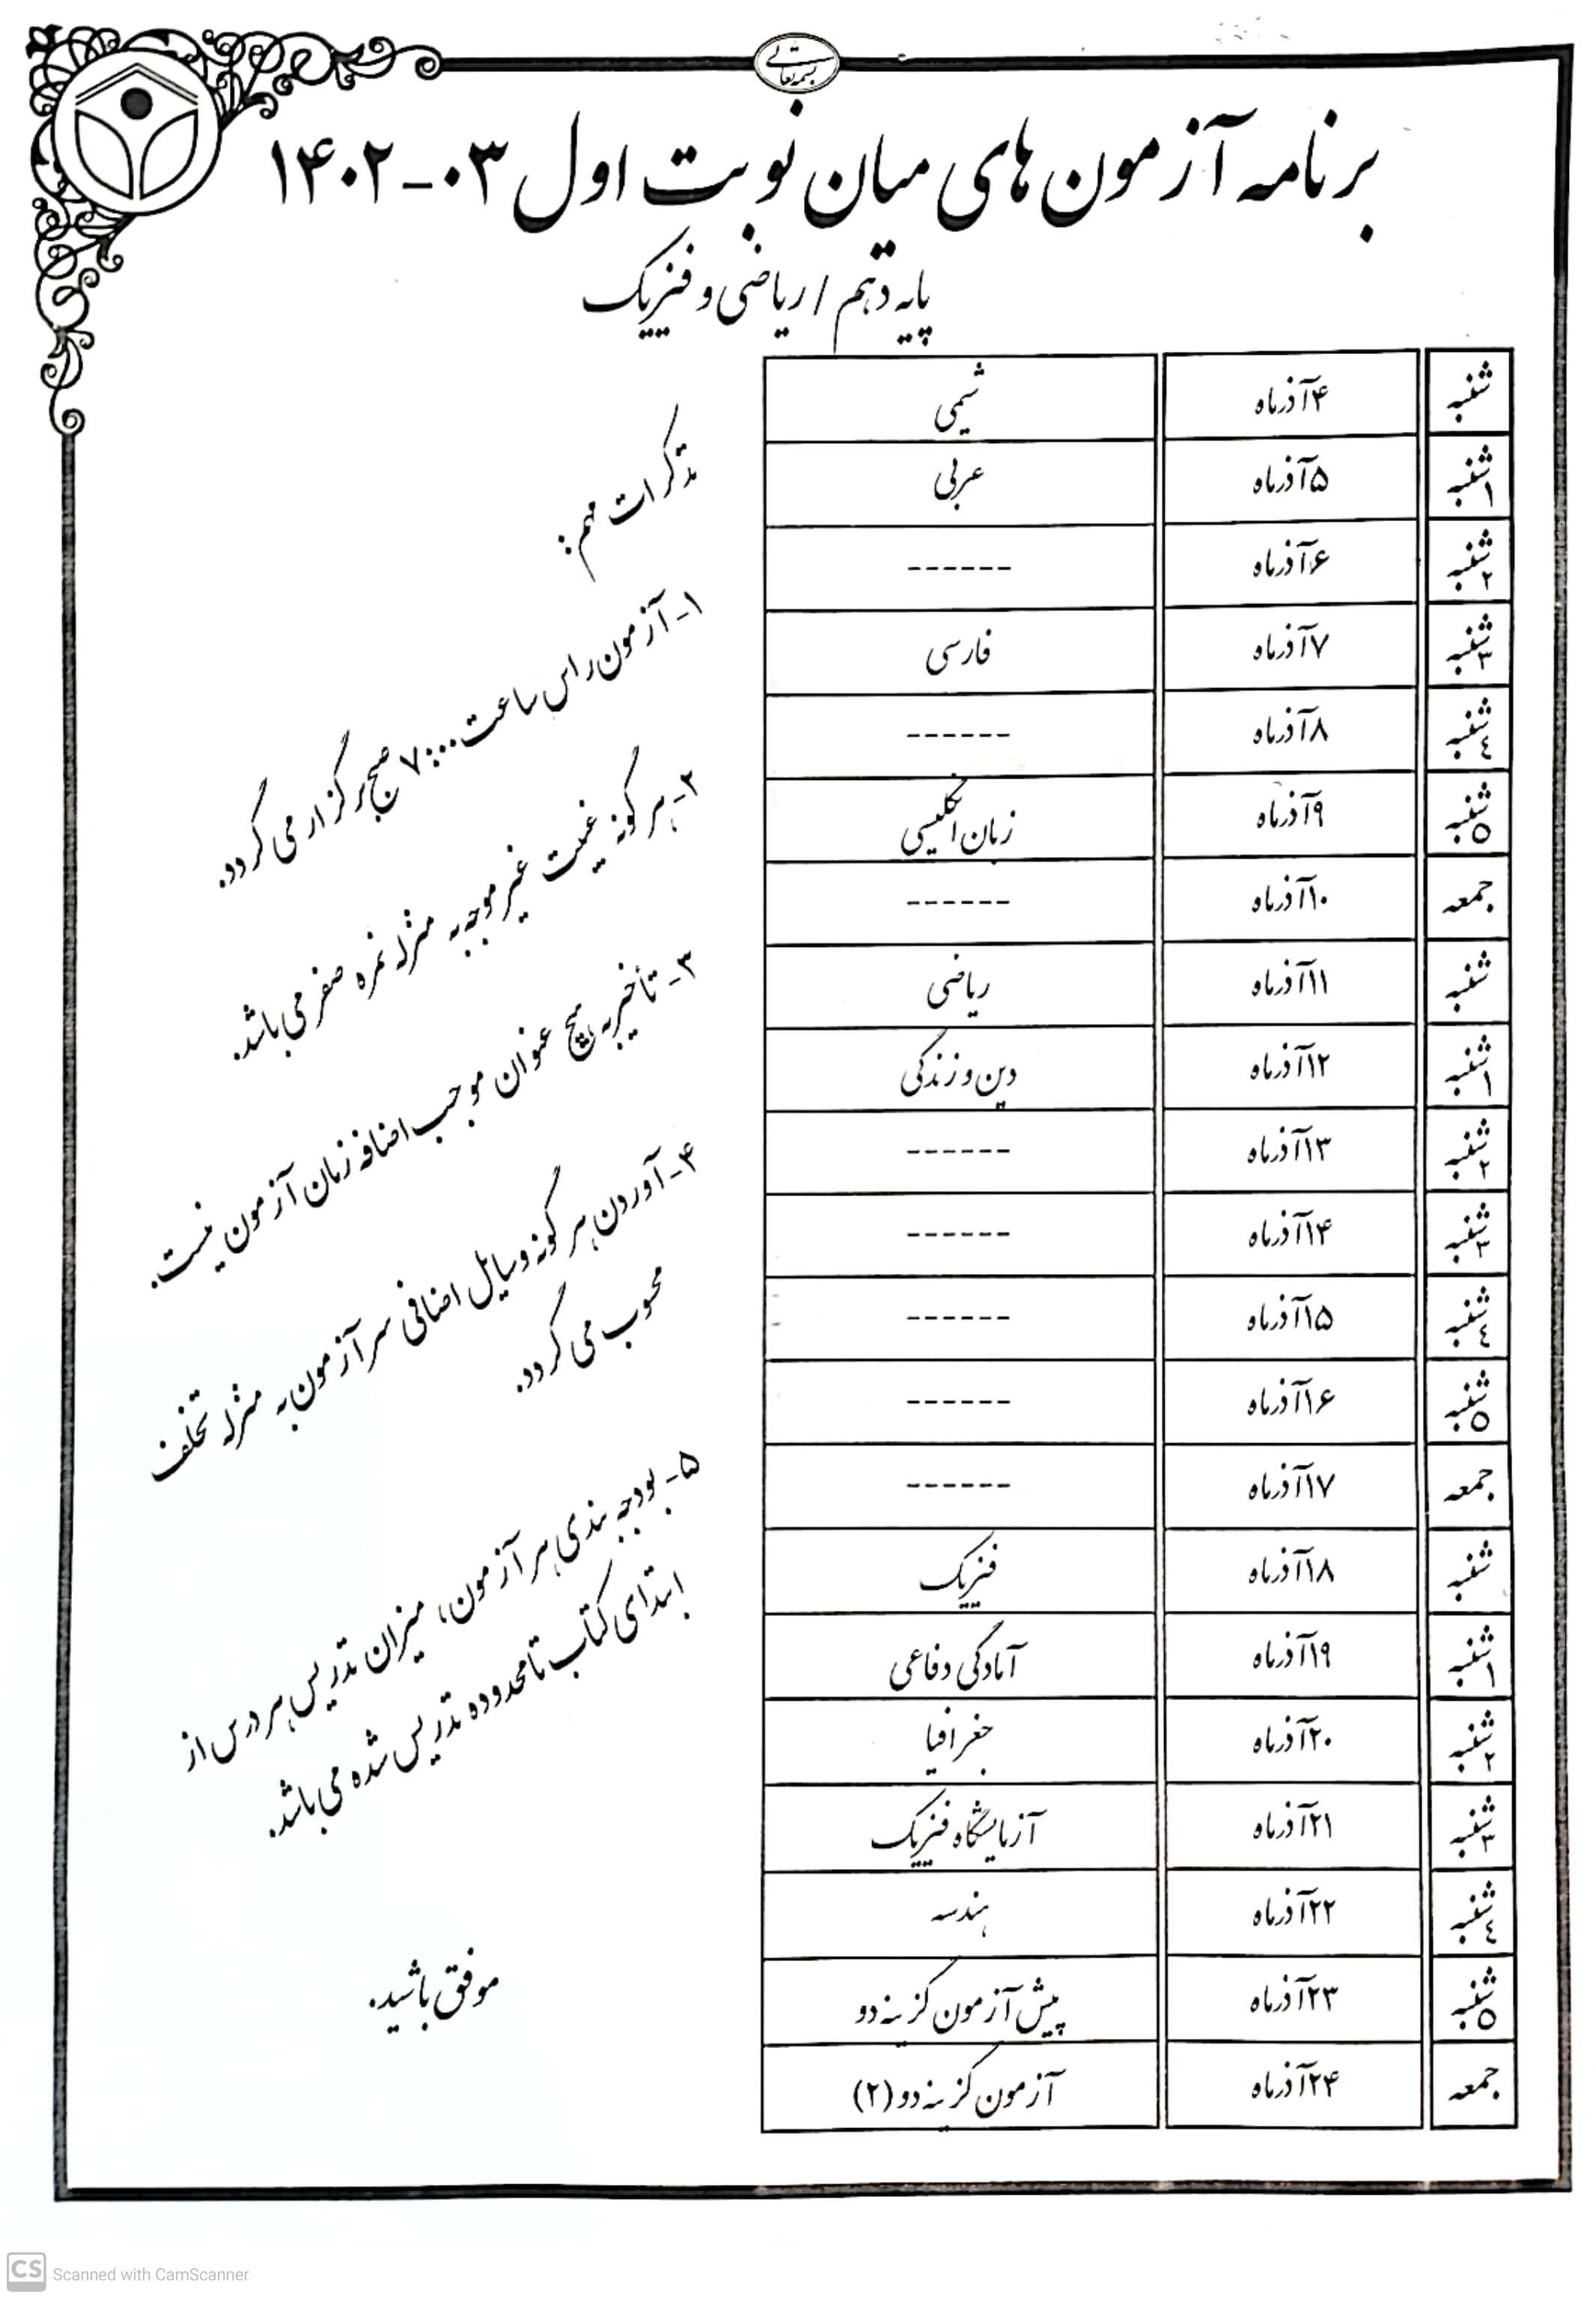 بسمه تعالی
برنامه آزمون های میان نوبت اول ۰۳-۱۴۰۲
پایه دهم / ریاضی و فیزیک
شنبه ۴آذرماه شیمی
۱شنبه ۵آذرماه عربی
۲شنبه ۶آذرماه ------
۳شنبه ۷آذرماه فارسی
٤شنبه ۸آذرماه ------
۵شنبه ۹آذرماه زبان انگلیسی
جمعه ۱۰آذرماه ------
شنبه ۱۱آذرماه ریاضی
۱شنبه ۱۲آذرماه دین و زندگی
۲شنبه ۱۳آذرماه ------
۳شنبه ۱۴آذرماه ------
٤شنبه ۱۵آذرماه ------
۵شنبه ۱۶آذرماه ------
جمعه ۱۷آذرماه ------
شنبه ۱۸آذرماه فیزیک
۱شنبه ۱۹آذرماه آمادگی دفاعی
۲شنبه ۲۰آذرماه جغرافیا
۳شنبه ۲۱آذرماه آزمایشگاه فیزیک
٤شنبه ۲۲آذرماه هندسه
۵شنبه ۲۳آذرماه پیش آزمون گزینه دو
جمعه ۲۴آذرماه آزمون گزینه دو (۲)
تذکرات مهم:
۱- آزمون راس ساعت ۷:۰۰ صبح برگزار می گردد.
۲- هر گونه غیبت غیر موجه به منزله نمره صفر می باشد.
۳- تأخیر به هیچ عنوان موجب اضافه زمان آزمون نیست.
۴- آوردن هر گونه وسایل اضافی سر آزمون به منزله تخلف
محسوب می گردد.
۵- بودجه بندی هر آزمون، میزان تدریس هر درس از
ابتدای کتاب تا محدوده تدریس شده می باشد.
موفق باشید.
CS Scanned with CamScanner